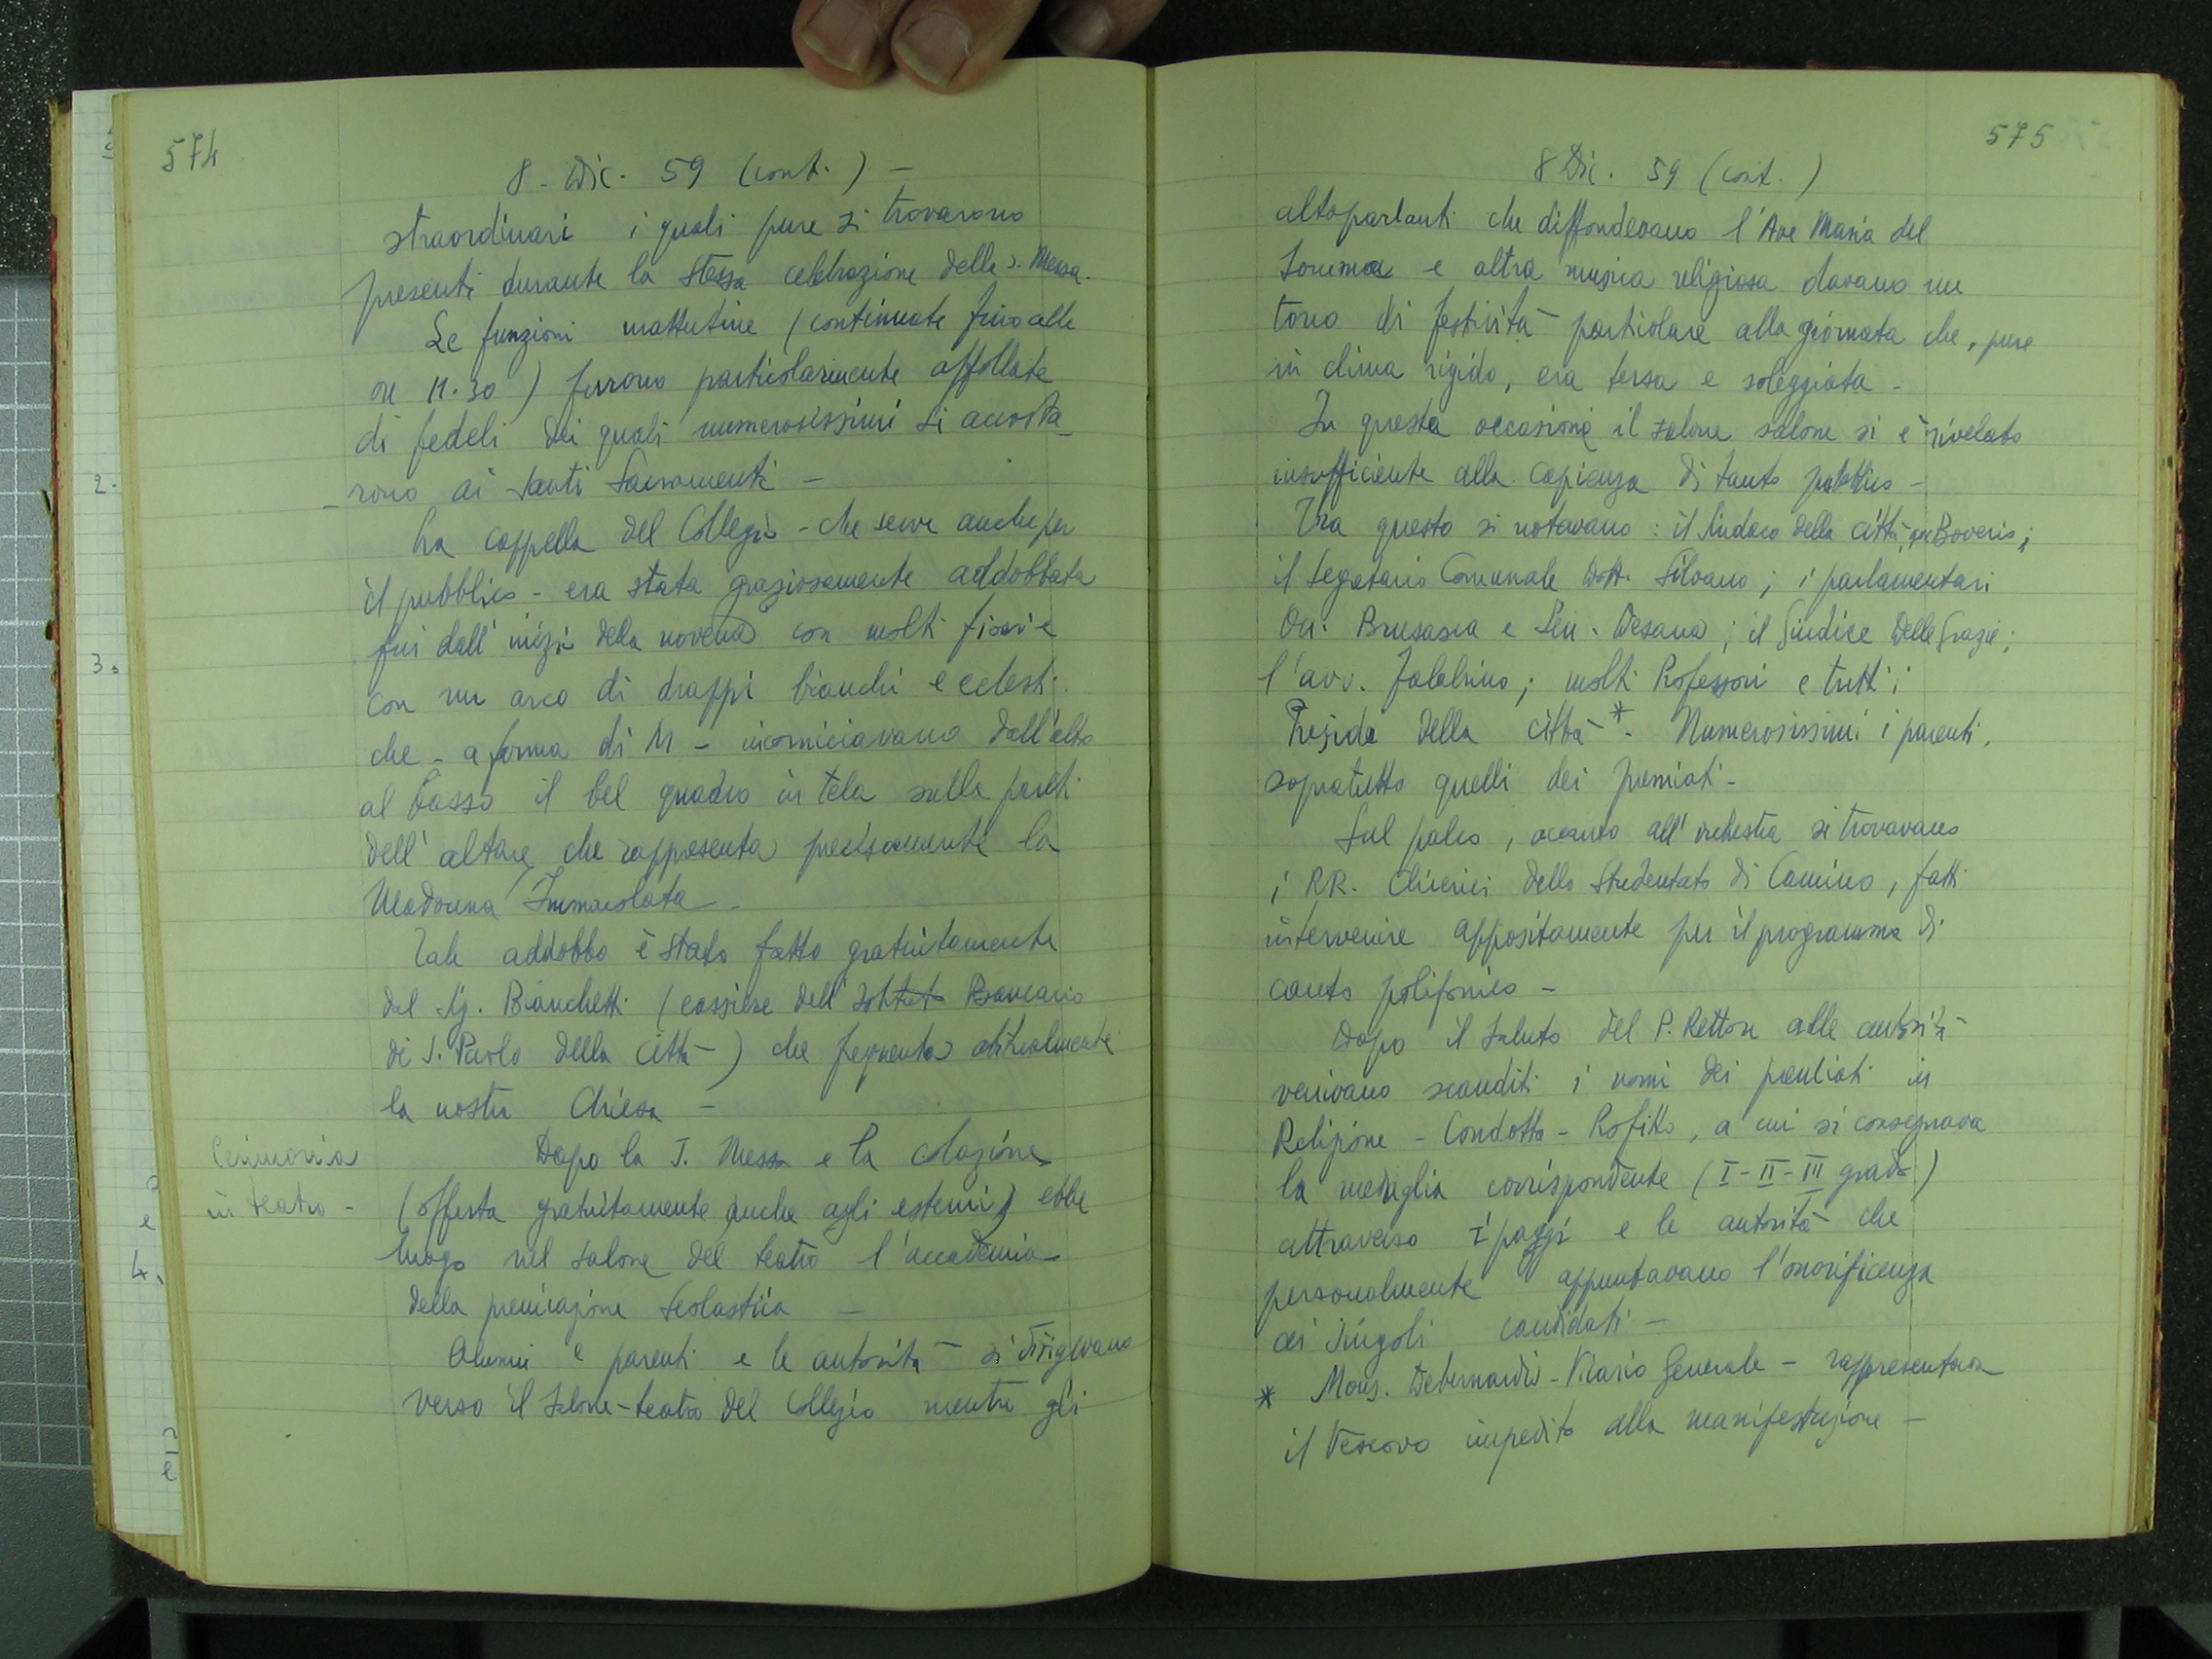 574
8. Dic. 59 (cont.) -
straordinari i quali pure si trovarono
presenti durante la stessa celebrazione della s. Messa.
Le funzioni mattutine (continuate fino alle
ore 11.30) furono particolarmente affollate
di fedeli dei quali numerosissimi si accosta-
-rono ai Santi Sacramenti -
La cappella del Collegio - che serve anche per
il pubblico - era stata graziosamente addobbata
fin dall'inizio della novena con molti fiori e
con un arco di drappi bianchi e celesti
che - a forma di M - incorniciavano dall'alto
al basso il bel quadro in tela sulla pareti
dell'altare che rappresenta precisamente la
Madonna Immacolata -
Tale addobbo è stato fatto gratuitamente
dal Sig. Bianchetti (cassiere dell'Istituto Bancario
di S. Paolo della Città) che frequenta abitualmente
la nostra Chiesa -
Cerimonia
in teatro -
Dopo la S. Messa e la colazione
(offerta gratuitamente anche agli esterni) ebbe
luogo nel salone del teatro l'accademia
della premiazione scolastica -
Alunni e parenti e le autorità si dirigevano
verso il salone-teatro del Collegio mentre gli
2.
3.
e
4.
575
8 Dic. 59 (cont.)
altoparlanti che diffondevano l'Ave Maria del
e altra musica religiosa davano un
tono di festività particolare alla giornata che, pure
in clima rigido, era tersa e soleggiata -
In questa occasione il salone salone si è rivelato
insufficiente alla capienza di tanto pubblico -
Tra questo si notavano: il Sindaco della città, Boverio;
il Segretario Comunale Dott. Silvano; i parlamentari
On. Brusasca e Sen. Desana; il Giudice Delle Grazie;
l'avv. molti Professori e tutti i
Presidi della città * - Numerosissimi i parenti,
sopratutto quelli dei premiati -
Sul palco, accanto all'orchestra si trovavano
i RR. Chierici dello Studentato di Camino, fatti
intervenire appositamente per il programma di
canto polifonico -
Dopo il saluto del P. Rettore alle autorità
venivano scanditi i nomi dei premiati in
Religione - Condotta - Profitto, a cui si consegnava
la medaglia corrispondente (I - II - III grado)
attraverso i paggi e le autorità che
personalmente appuntavano l'onorificenza
ai singoli candidati -
* Mons. Debernardi - Vicario Generale - rappresentava
il Vescovo impedito alla manifestazione -